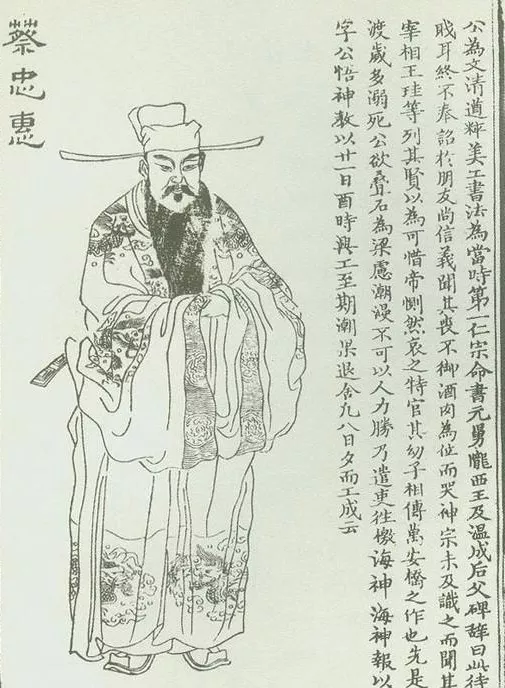 公為文清遒粹美工書法為當時第一仁宗命書元舅隴西王及溫成后父碑辭曰此待
職耳終不奉詔於朋友尚信義聞其喪不御酒肉為位而哭神宗未及識之而聞其
宰相王珪等列其賢以為可惜帝惻然哀之特官其幼子相傳萬安橋之作也先是
渡歲多溺死公欲疊石為梁慮潮漫不可以人力勝乃遣吏往檄海神海神報以
字公悟神教以廿一日酉時興工至期潮果退舍凡八日夕而工成云
蔡忠惠